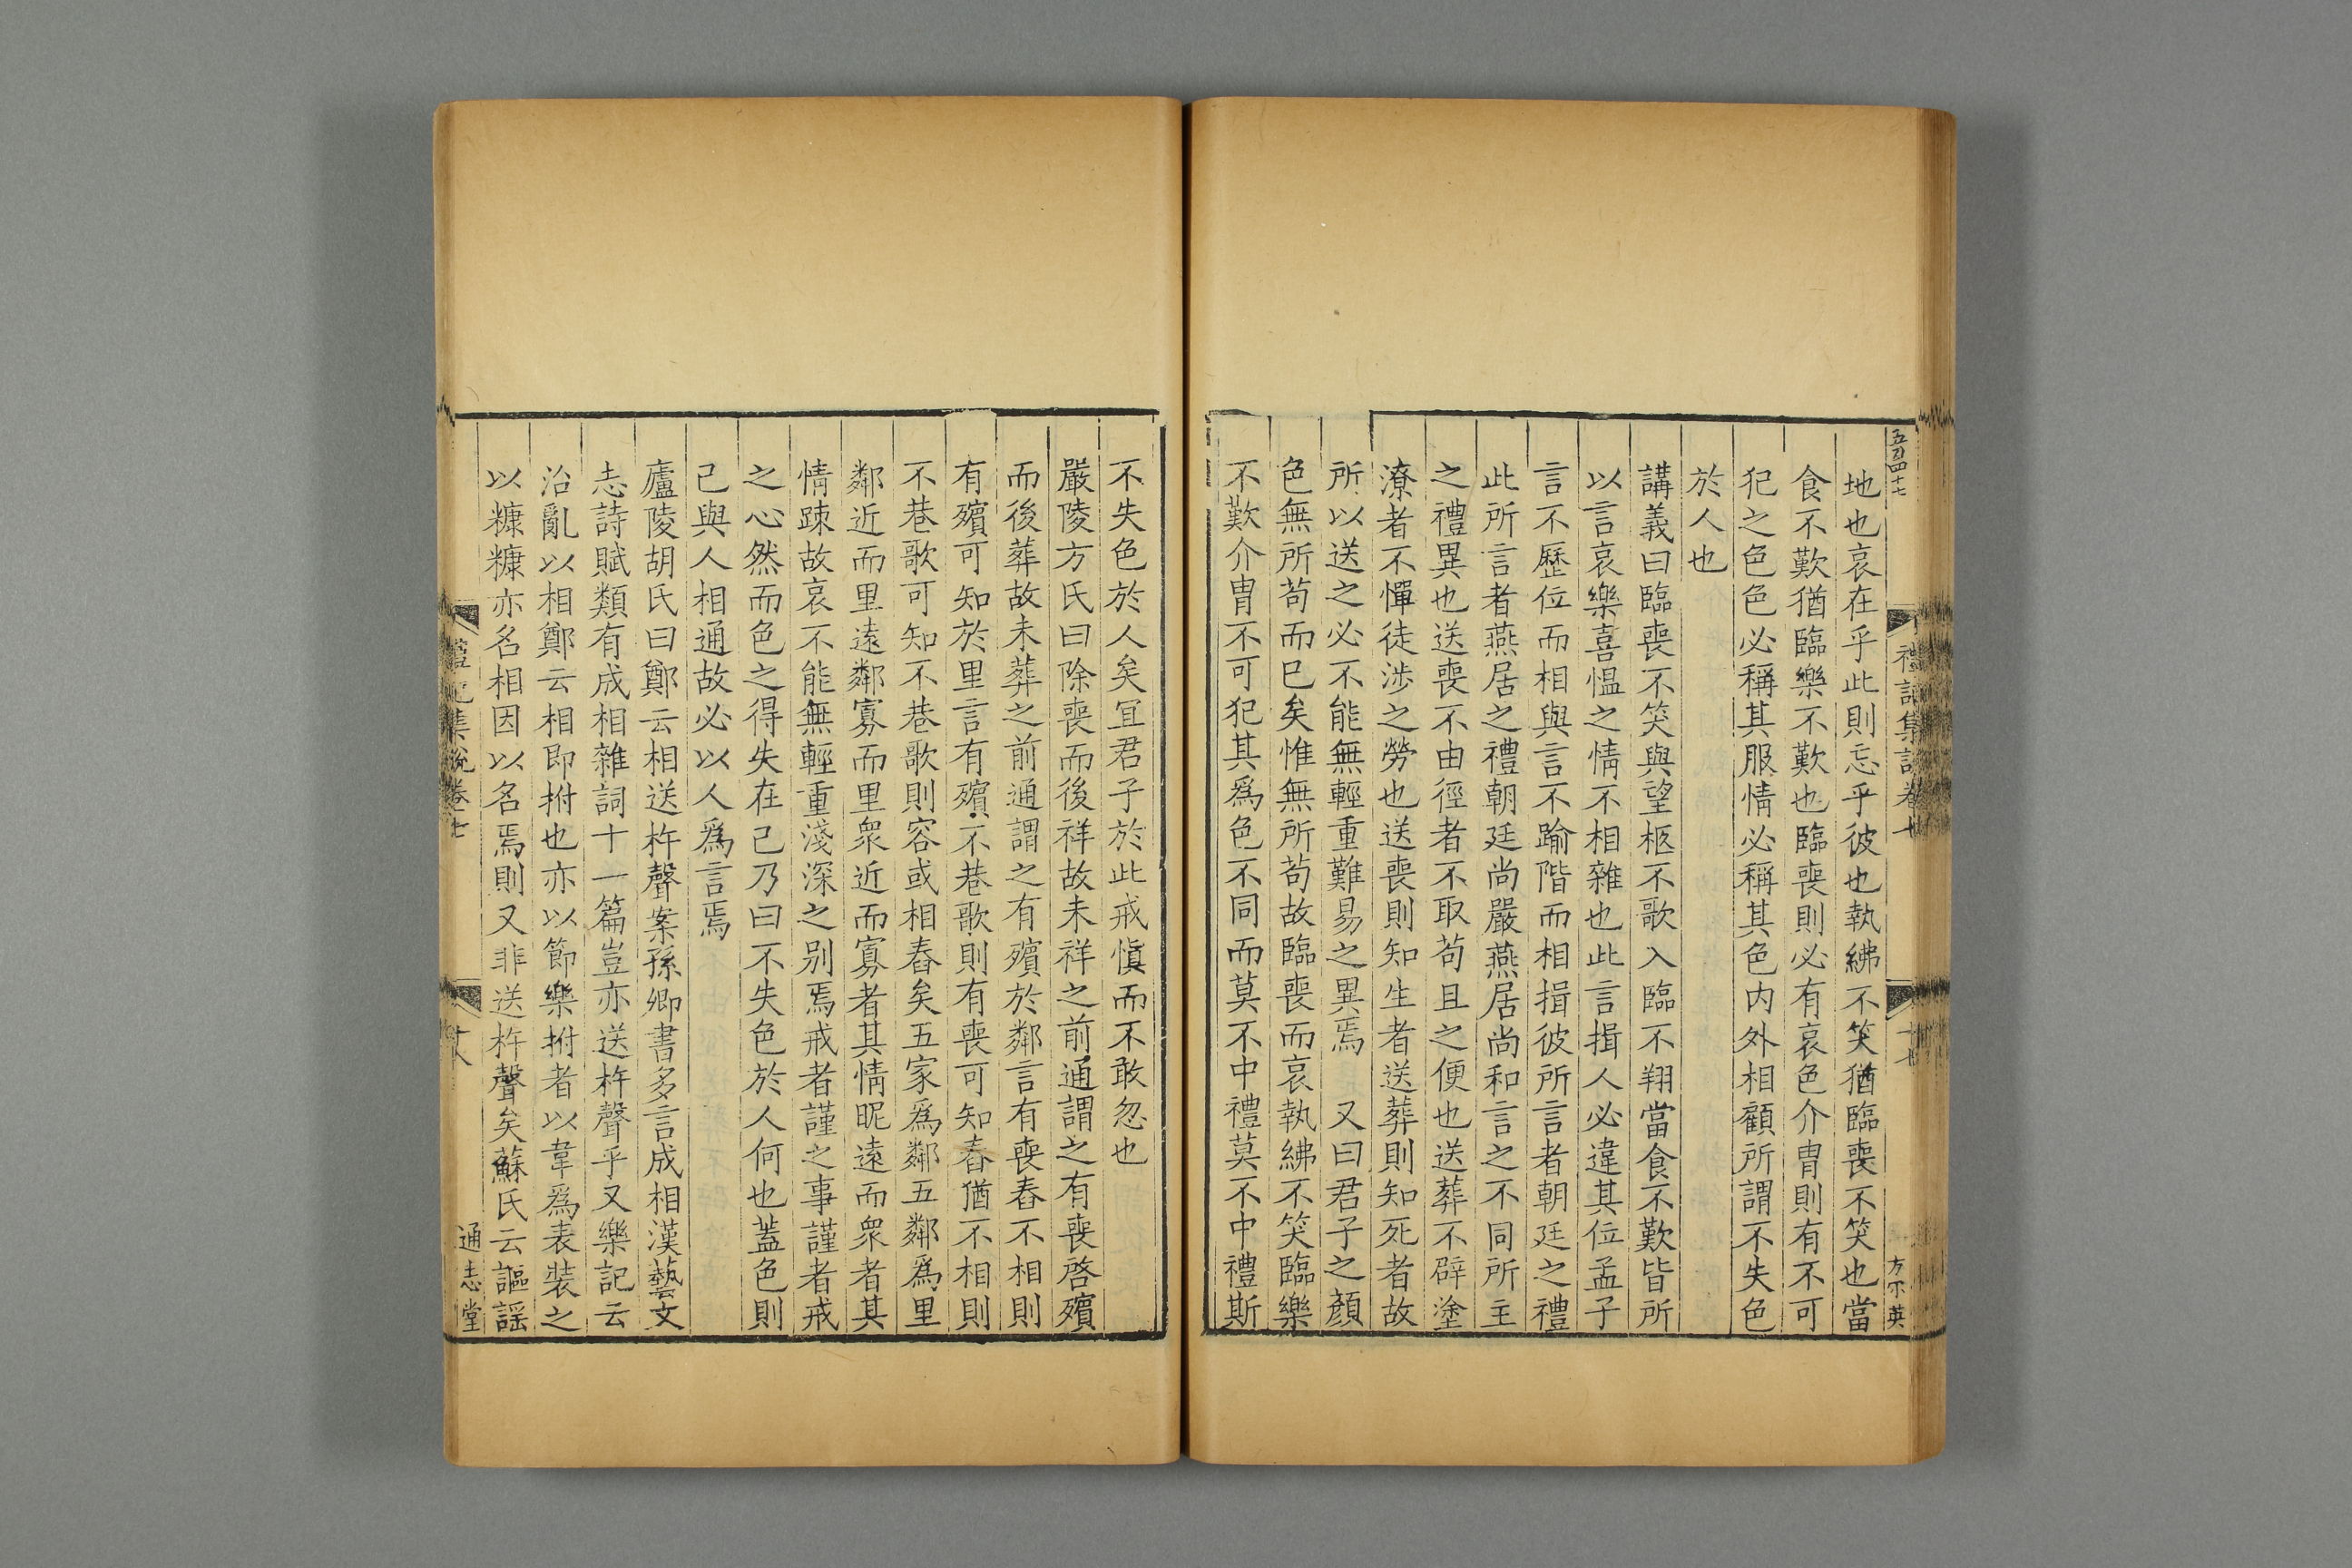 禮記集說卷七
十七
方不英
地也哀在乎此則忘乎彼也執紼不笑猶臨喪不笑也當
食不歎猶臨樂不歎也臨喪則必有哀色介冑則有不可
犯之色色必稱其服情必稱其色内外相顧所謂不失色
於人也
講義曰臨喪不笑與望柩不歌入臨不翔當食不歎皆所
以言哀樂喜愠之情不相雜也此言揖人必違其位孟子
言不歷位而相與言不踰階而相揖彼所言者朝廷之禮
此所言者燕居之禮朝廷尚嚴燕居尚和言之不同所主
之禮異也送喪不由徑者不取苟且之便也送葬不辟塗
潦者不憚徒涉之勞也送喪則知生者送葬則知死者故
所以送之必不能無輕重難易之異焉　又曰君子之顏
色無所苟而已矣惟無所苟故臨喪而哀執紼不笑臨樂
不歎介冑不可犯其爲色不同而莫不中禮莫不中禮斯
不失色於人矣冝君子於此戒愼而不敢忽也
嚴陵方氏曰除喪而後祥故未祥之前通謂之有喪啓殯
而後葬故未葬之前通謂之有殯於鄰言有喪舂不相則
有殯可知於里言有殯不巷歌則有喪可知舂猶不相則
不巷歌可知不巷歌則容或相舂矣五家爲鄰五鄰爲里
鄰近而里遠鄰寡而里衆近而寡者其情昵遠而衆者其
情踈故哀不能無輕重淺深之别焉戒者謹之事謹者戒
之心然而色之得失在己乃曰不失色於人何也蓋色則
己與人相通故必以人爲言焉
廬陵胡氏曰鄭云相送杵聲案孫卿書多言成相漢藝文
志詩賦類有成相雜詞十一篇豈亦送杵聲乎又樂記云
治亂以相鄭云相即拊也亦以節樂拊者以韋爲表裝之
以糠糠亦名相因以名焉則又非送杵聲矣蘇氏云謳謡
禮記集說卷七
十八
通志堂